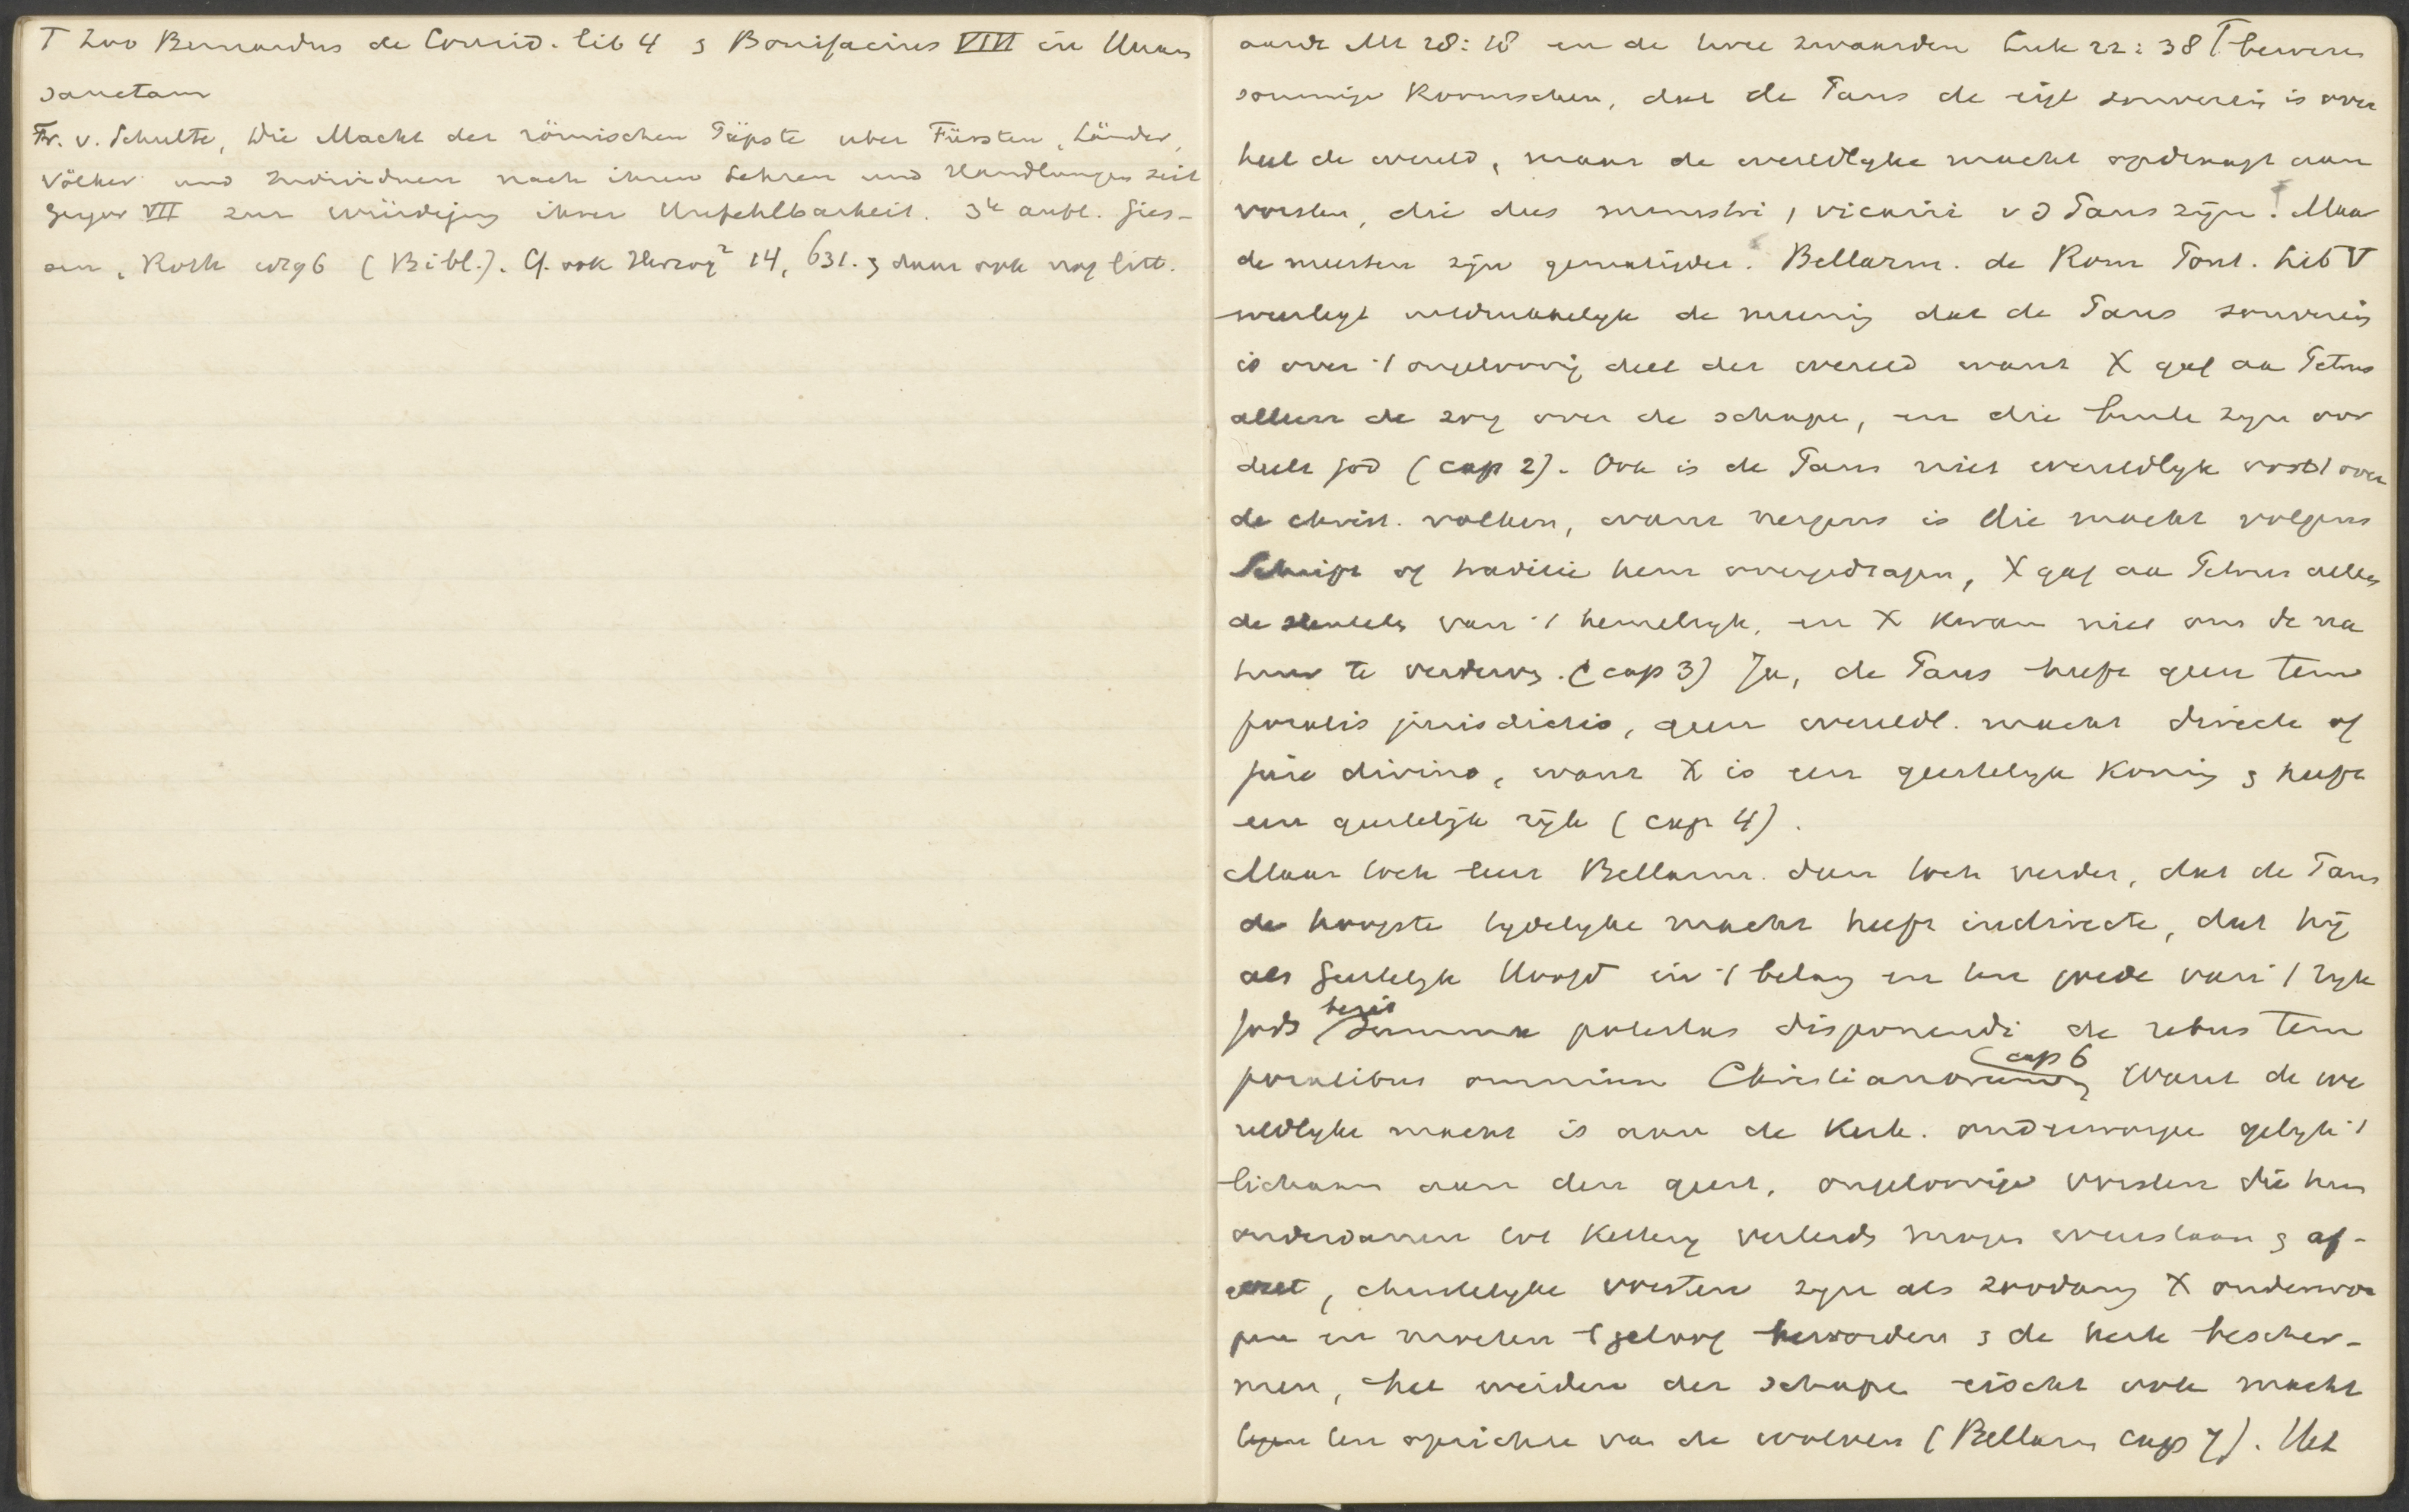 T Zoo Bernardus de Consid. lib 4 & Bonifacius VIII in Unam
Sanctam
Fr. v. Schulte, Die Macht der römischen Päpste uber Fürsten, Länder,
Völker und Individuen nach ihren Lehren und Handlungen seit
Gregor VII zur würdigung ihrer Unfehlbarkeit. 3e aufl. Gies-
sen, Roth (Bibl.). Cf. ook Herzog² 14, 631. & daar ook nog litt.
aarde Mt 28:18 en de twee zwaarden Luk 22:38 T beweren
sommige Roomschen, dat de Paus de eigl souverein is over
heel de wereld, maar de wereldlyke macht opdraagt aan
vorsten, die dus ministri, vicarii v d Paus zijn. Maar
de meesten zijn gematigder. Bellarm. de Rom Pont. Lib V
weerlegt uitdrukkelyk de mening dat de Paus souverein
is over 't ongeloovig deel der wereld want X gaf aa Petrus
alleen de zorg over de schapen, en die buiten zyn oor
deelt God (cap 2). Ook is de Paus niet wereldlyk vorst over
de christ. volken, want nergens is die macht volgens
Schrift of traditie hem overgedragen, X gaf aa Petrus alleen
de sleutels van 't hemelryk, en X kwam niet om de na
tuur te verderven. (cap 3) Ja, de Paus heeft geen tem
poralis jurisdictio, geen wereldl. macht directe of
jure divino, want X is een geestelyk Koning & heeft
een geestelijk rijk (cap 4).
Maar toch leert Bellarm. dan toch verder, dat de Paus
de hoogste tydelyke macht heeft indirecte, dat hij
als Geestelyk Hoofd in 't belang en ten goede van 't ryk
Gods bezit summa potestas disponendi de rebus tem
poralibus omnium Christianorum (cap 6 Want de we
reldlyke macht is aan de Kerk. onderworpen gelyk 't
lichaam aan den geest, ongeloovige vorsten die hun
onderdanen tot Kettery verleiden mogen weerstaan & af-
gezet, christelyke vorsten zyn als zoodanig X onderwor
pen en moeten 't geloof bevorderen & de kerk bescher-
men, het weiden der schapen eischt ook macht
ten opzichte van de wolven (Bellarm cap 7). Het